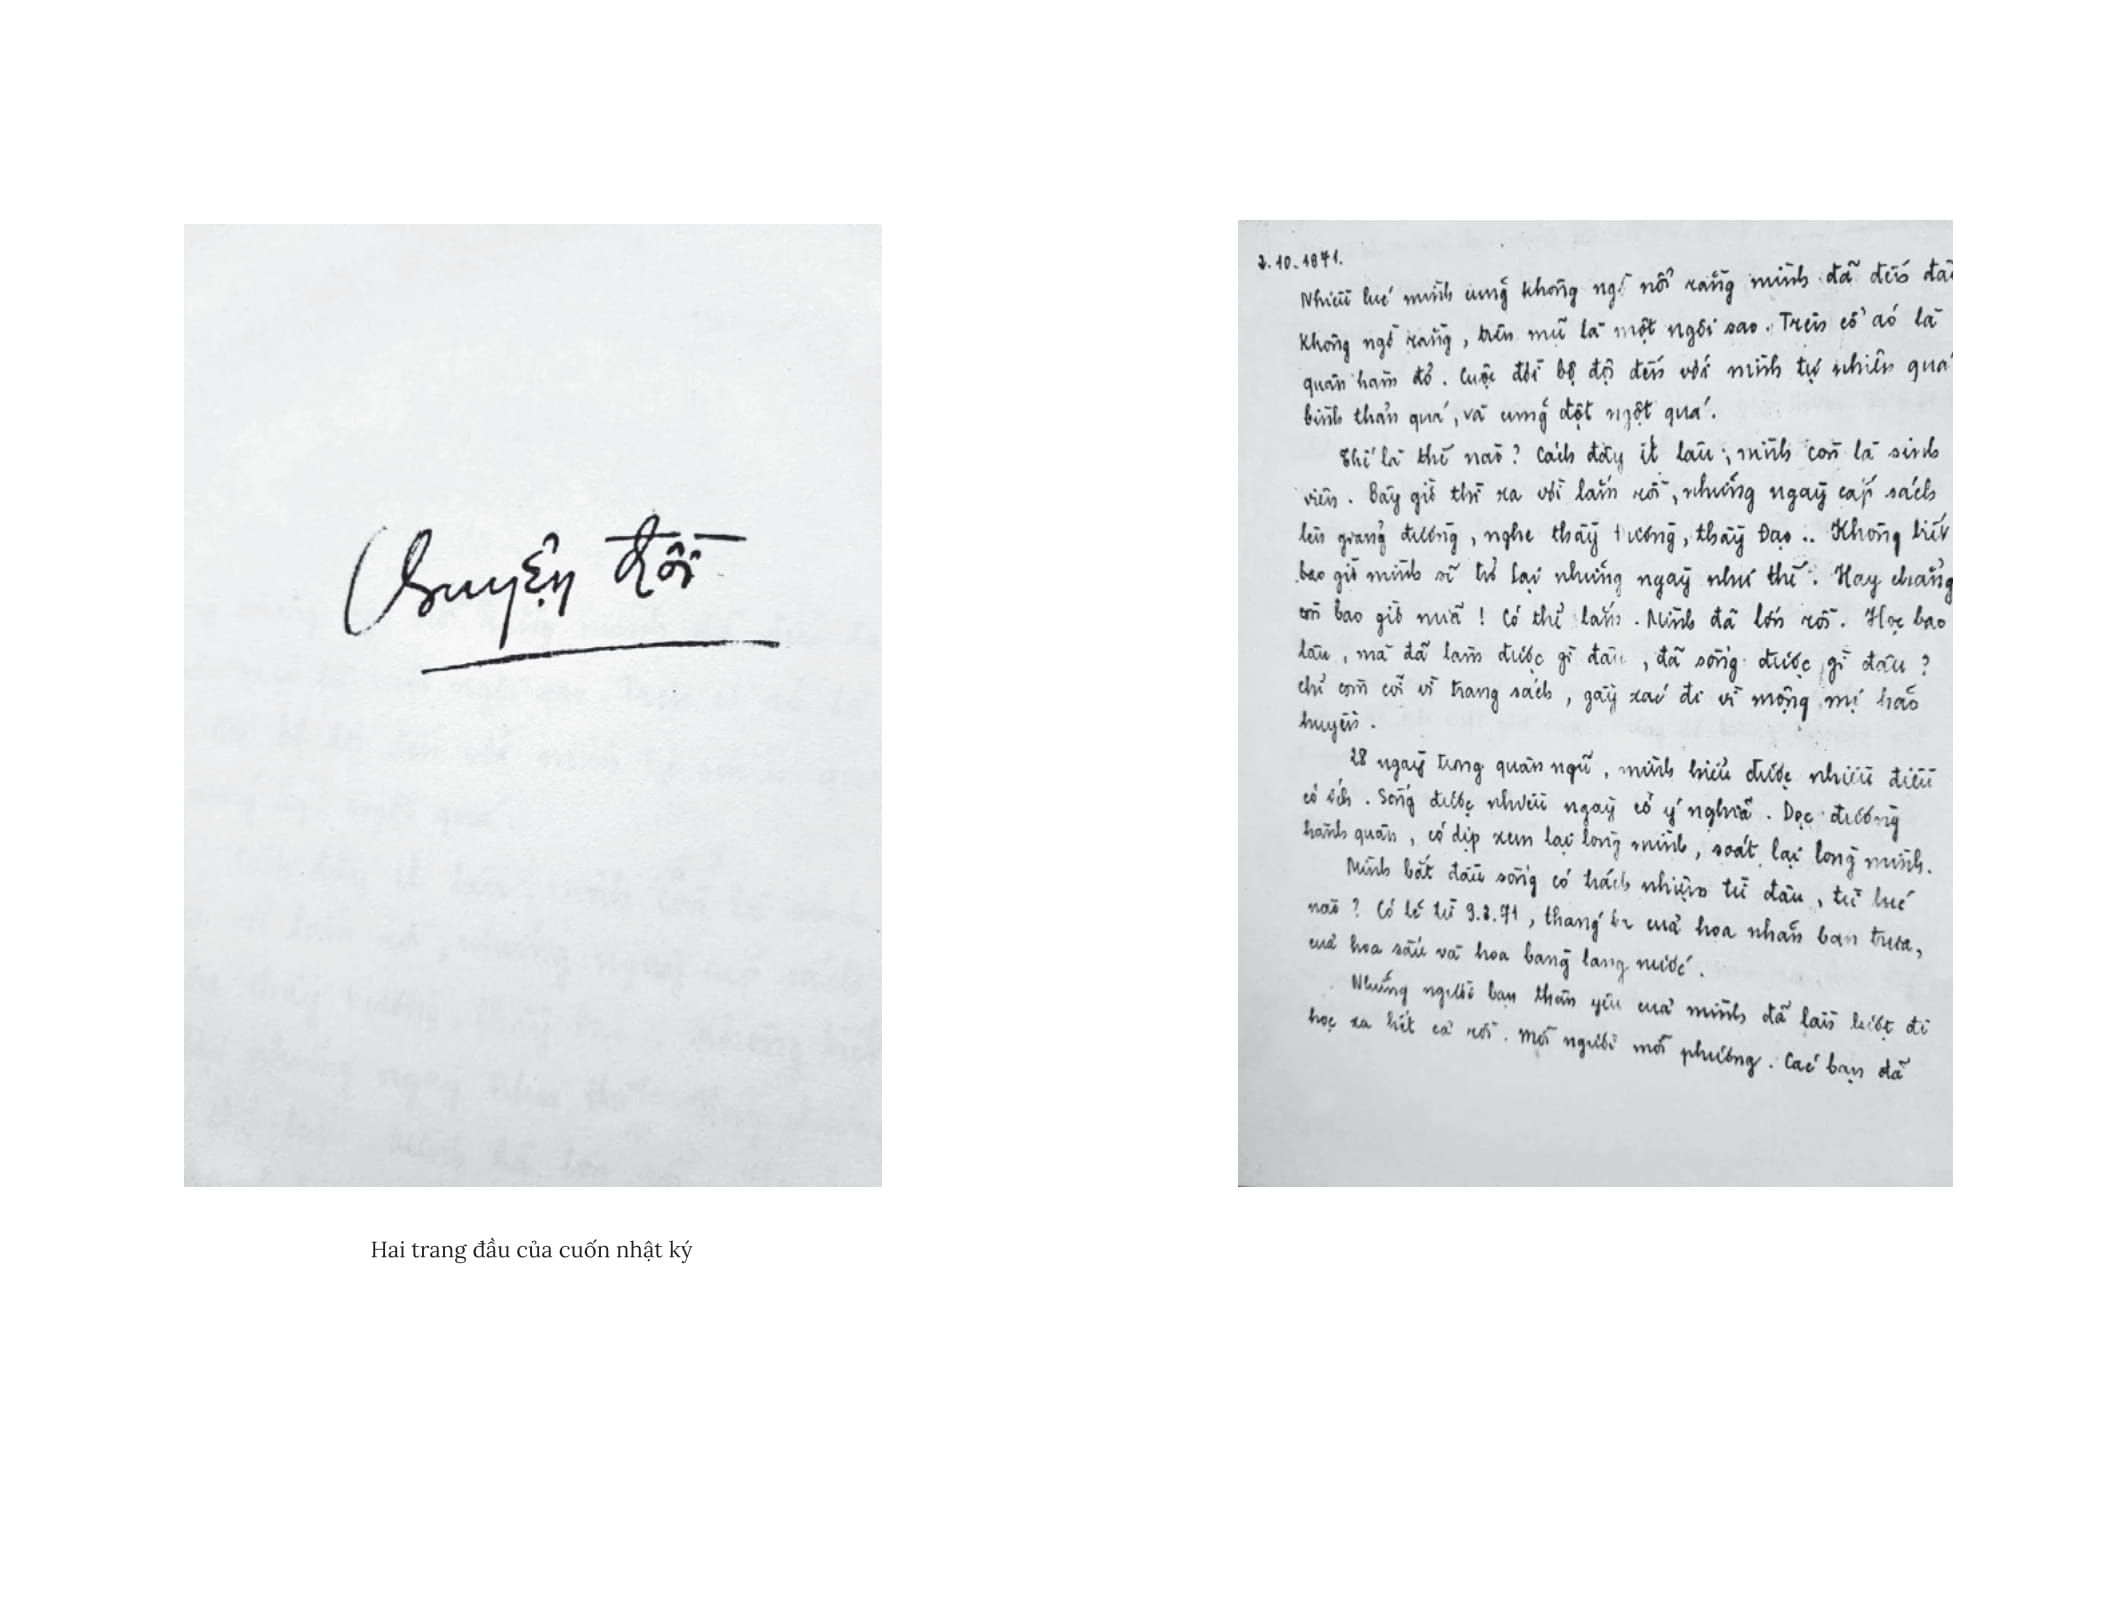 Chuyện đời
Hai trang đầu của cuốn nhật ký
2.10.1971.
Nhiều lúc mình cũng không ngờ nổi rằng mình đã đến đâ
Không ngờ rằng, trên mũ là một ngôi sao. Trên cổ áo là
quân hàm đỏ. Cuộc đời bộ đội đến với mình tự nhiên quá
bình thản quá, và cũng đột ngột quá.
Thế là thế nào? Cách đây ít lâu, mình còn là sinh
viên. Bây giờ thì xa vời lắm rồi, những ngày cắp sách
lên giảng đường, nghe thầy Đường, thầy Đạo.. Không biết
bao giờ mình sẽ trở lại những ngày như thế. Hay chẳng
còn bao giờ nữa! Có thể lắm. Mình đã lớn rồi. Học bao
lâu, mà đã làm được gì đâu, đã sống được gì đâu?
chỉ còm cõi vì trang sách, gầy xác đi vì mộng mị hão
huyền.
28 ngày trong quân ngũ, mình hiểu được nhiều điều
có ích. Sống được nhiều ngày có ý nghĩa. Dọc đường
hành quân, có dịp xem lại lòng mình, soát lại lòng mình.
Mình bắt đầu sống có trách nhiệm từ đâu, từ lúc
nào? Có lẽ từ 9.3.71, tháng ba của hoa nhãn ban trưa,
của hoa sấu và hoa bằng lăng nước.
Những người bạn thân yêu của mình đã lần lượt đi
học xa hết cả rồi. Mỗi người mỗi phương. Các bạn đã